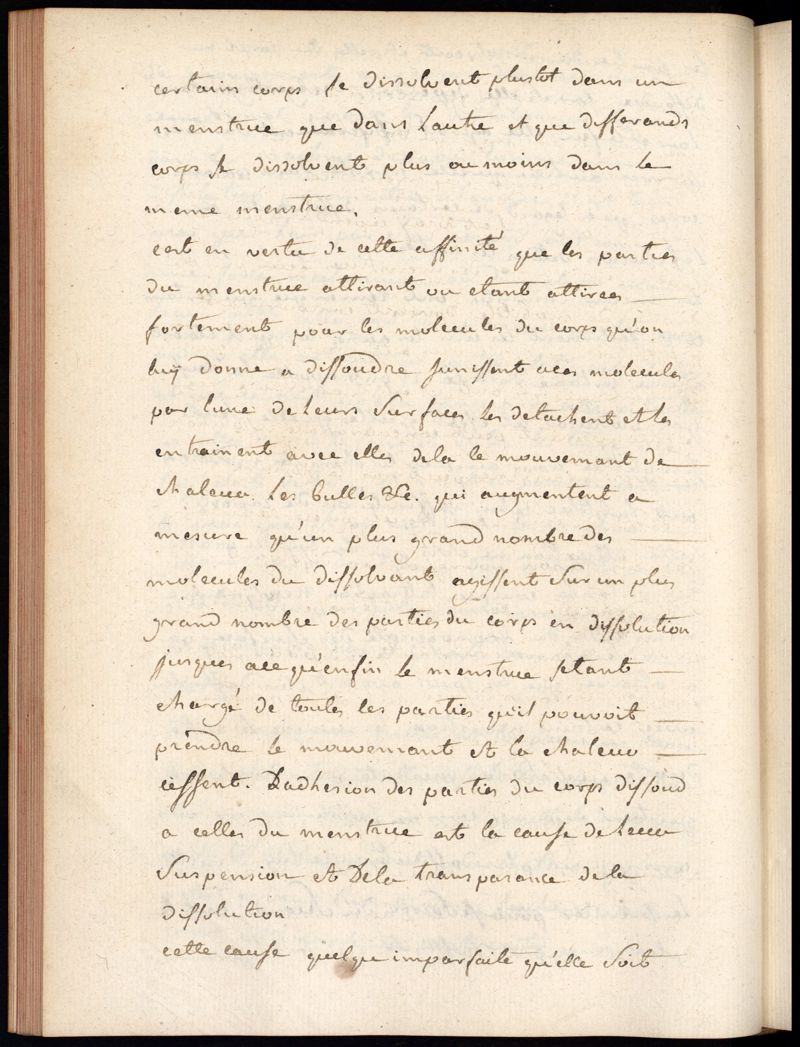 certains corps se dissolvent plustot dans un
menstrue que dans lautre et que differands
corps se dissolvent plus ou moins dans le
meme menstrue.
cest en vertu de cette affinité que les parties
du menstrue attirant ou etant attirees
fortement pour les molecules du corps qu'on
luy donne a dissoudre sunissent aces molecules
par lune de leurs surfaces les detachent et les
entrainent avec elles dela le mouvemant de
chaleur les bulles &c. qui augmentent a
mesure qu'un plus grand nombre des
molecules du dissolvant agissent sur un plus
grand nombre des parties du corps en dissolution
jusques ace qu'enfin le menstrue setant
chargé de toutes les parties qu'il pouvoit
prendre le mouvemant et la chaleur
cessent. Ladhesion des parties du corps dissoud
a celles du menstrue est la cause de leur
suspension et Dela transparance de la
dissolution
cette cause quelque imparfaite qu'elle soit